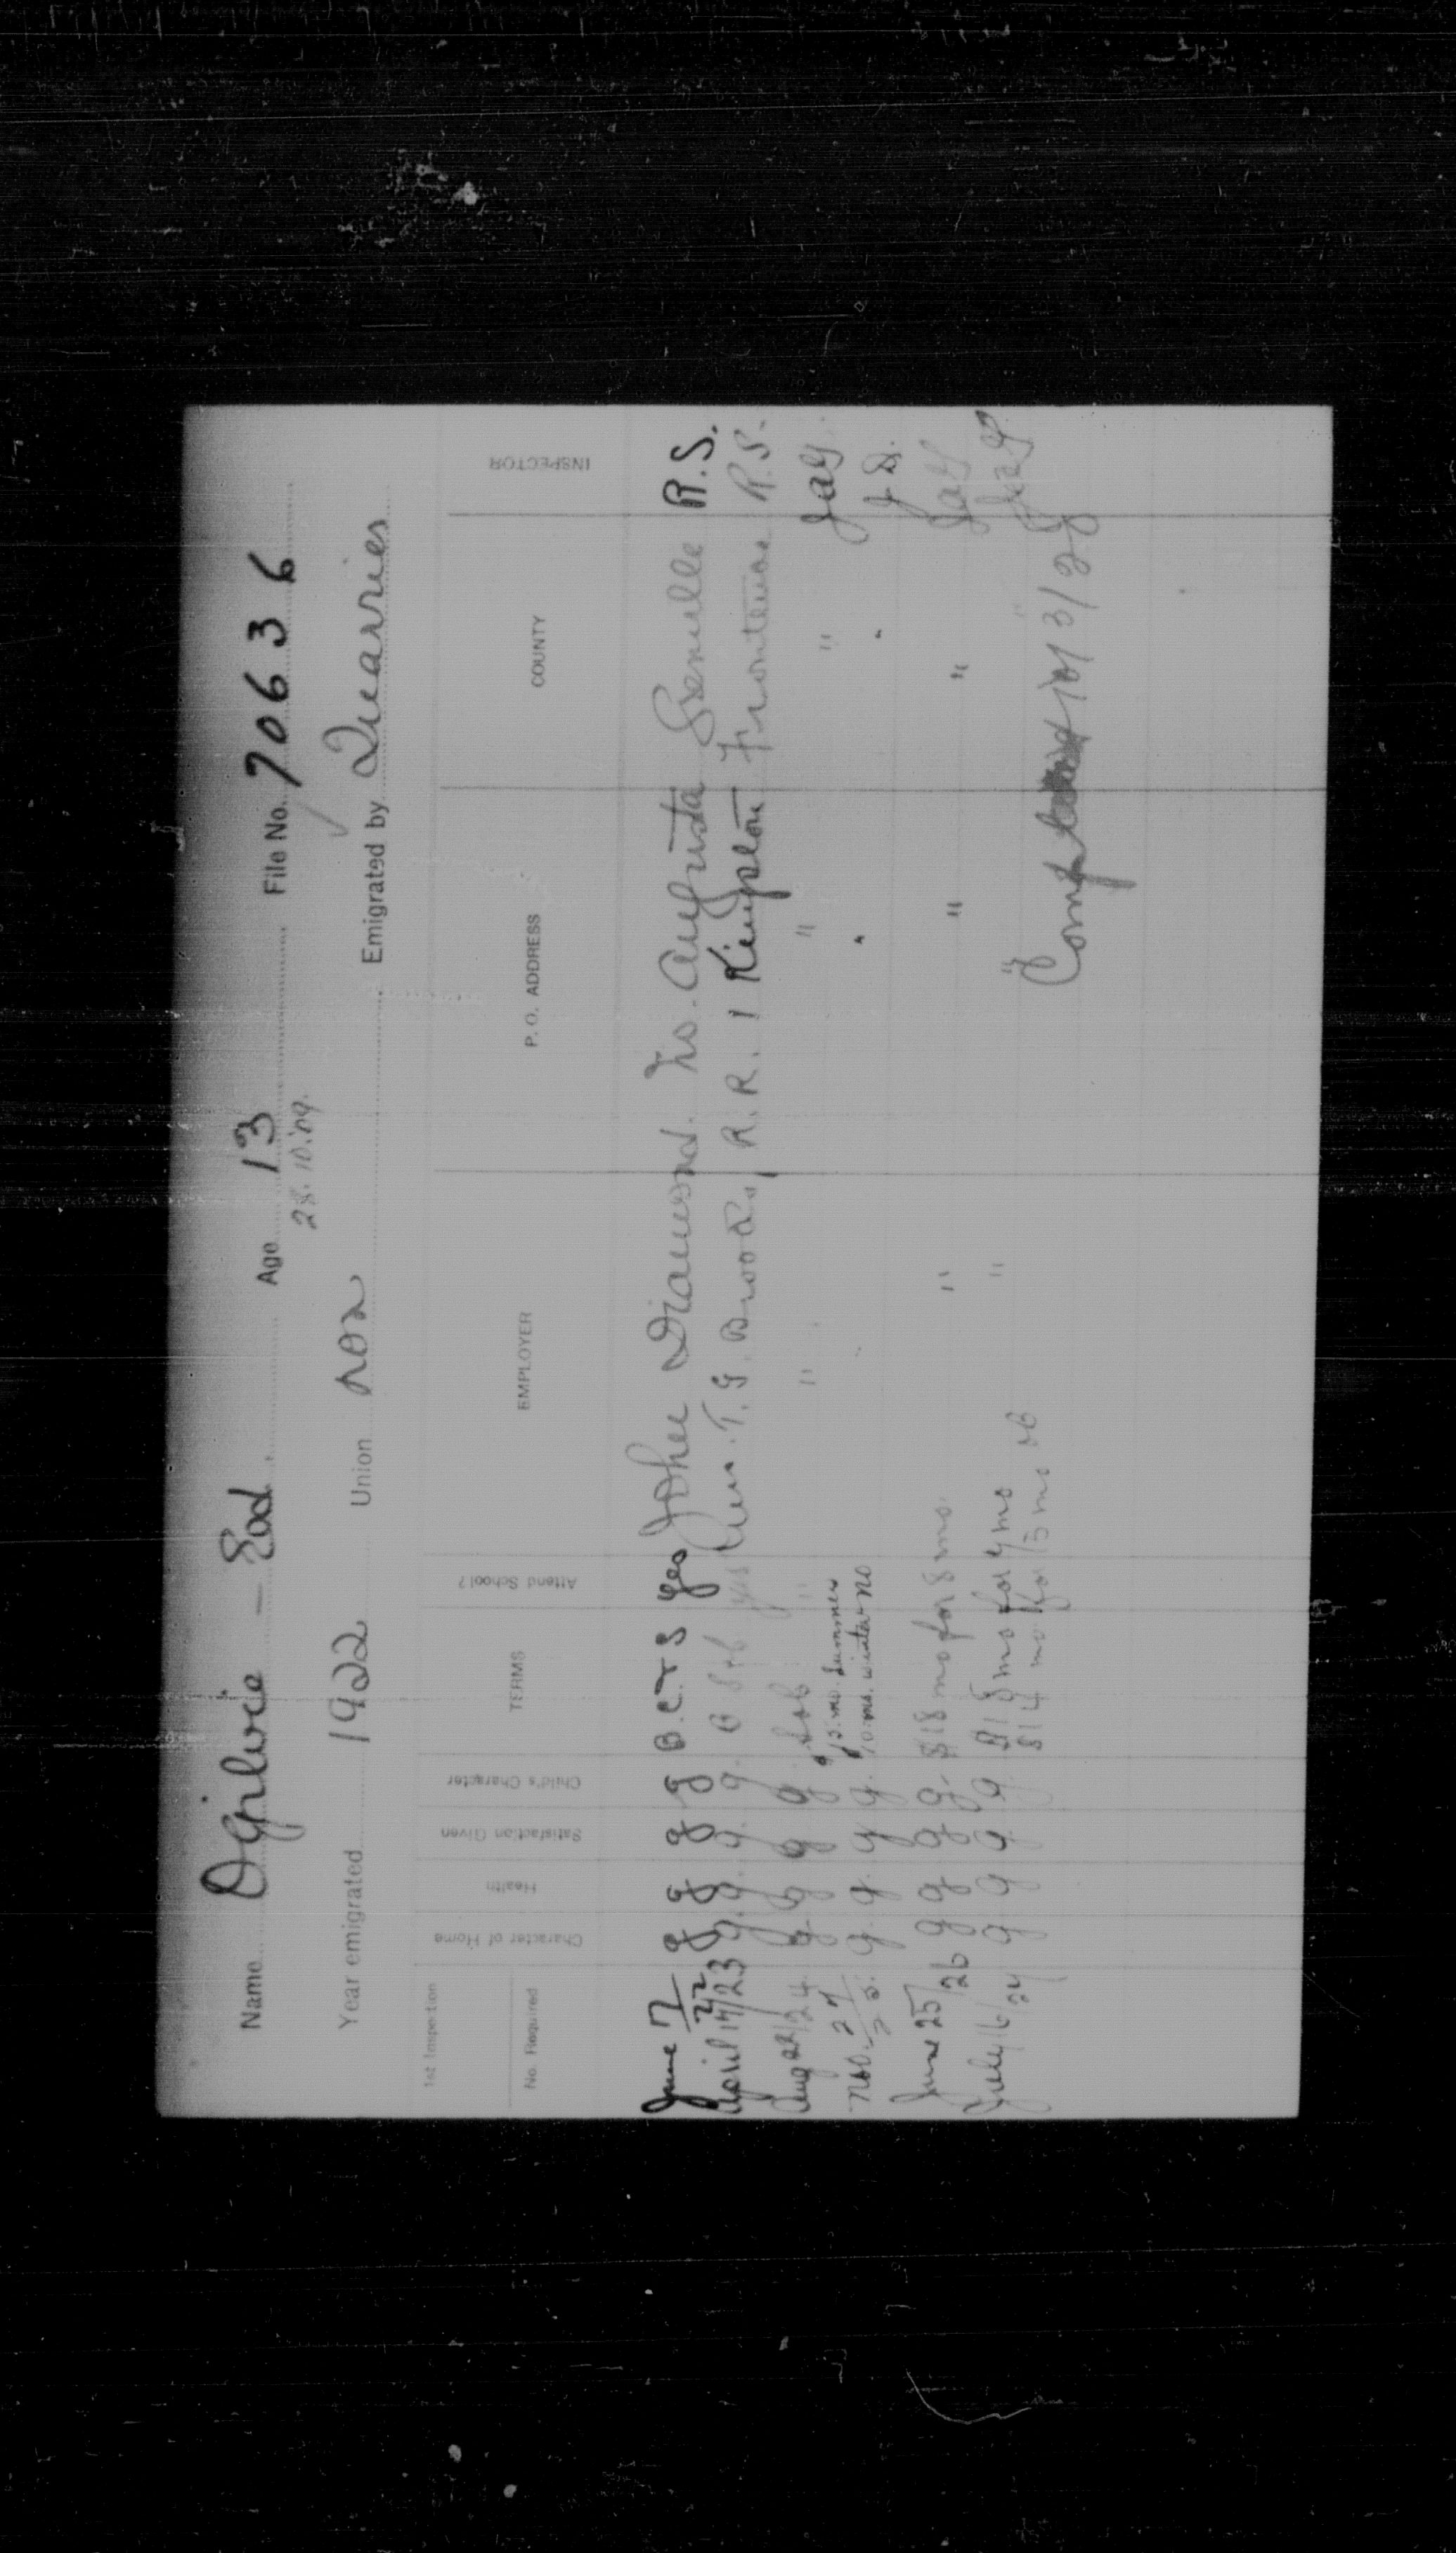 Name Ogilvie — Ed Age 13 File No. 70636
28.10.09.
Year emigrated 1922 Union non Emigrated by Quarries
1st Inspection
No. Required Character of Home Health Satisfaction Given Child's Character TERMS Attend School? EMPLOYER P. O. ADDRESS COUNTY INSPECTOR
June 7/22 g g g g B.C.+S yes John Diamond. No. Augusta Grenville R.S.
April 17/23 g. g. g. g. yes T. G. R.R. 1 Kingston Frontenac R.S.
Aug 22/24 g g g g " " " "
15. mo. Summer
Nov. 27/25. g. g. g. g. 10 mo. winter no J.D.
June 25/26 g g g g. $18 mo for 8 mo. " " "
July 16/27 g g g g $15 mo for 7 mo " " "
$14 mo for 5 mo
Completed 3/28